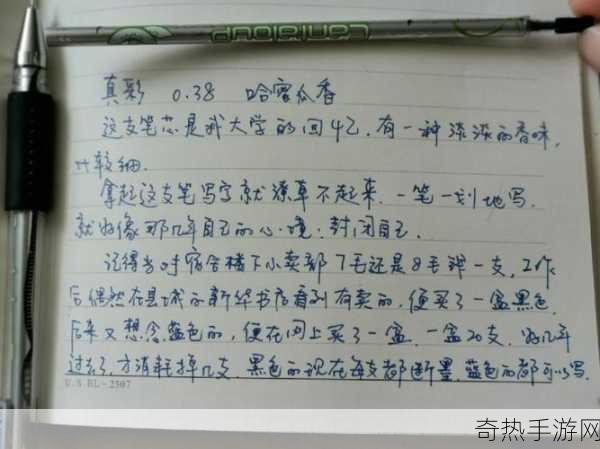 真彩 0.38 哈密瓜香
这支笔芯是我大学的回忆,有一种淡淡的香味,
比较细.
拿起这支笔写字就潦草不起来.一笔一划地写.
就好像那几年自己的心境:封闭自己.
记得当时宿舍楼下小卖部7毛还是8毛钱一支,工作
后偶然在县城的新华书店看到有卖的,便买了一盒黑色.
后来又想念蓝色的,便在网上买了一盒.一盒20支.好几年
过去了,才消耗掉几支.黑色的现在每支都断墨.蓝色的都可以写.
U.S.BL-2507
奇热手游网